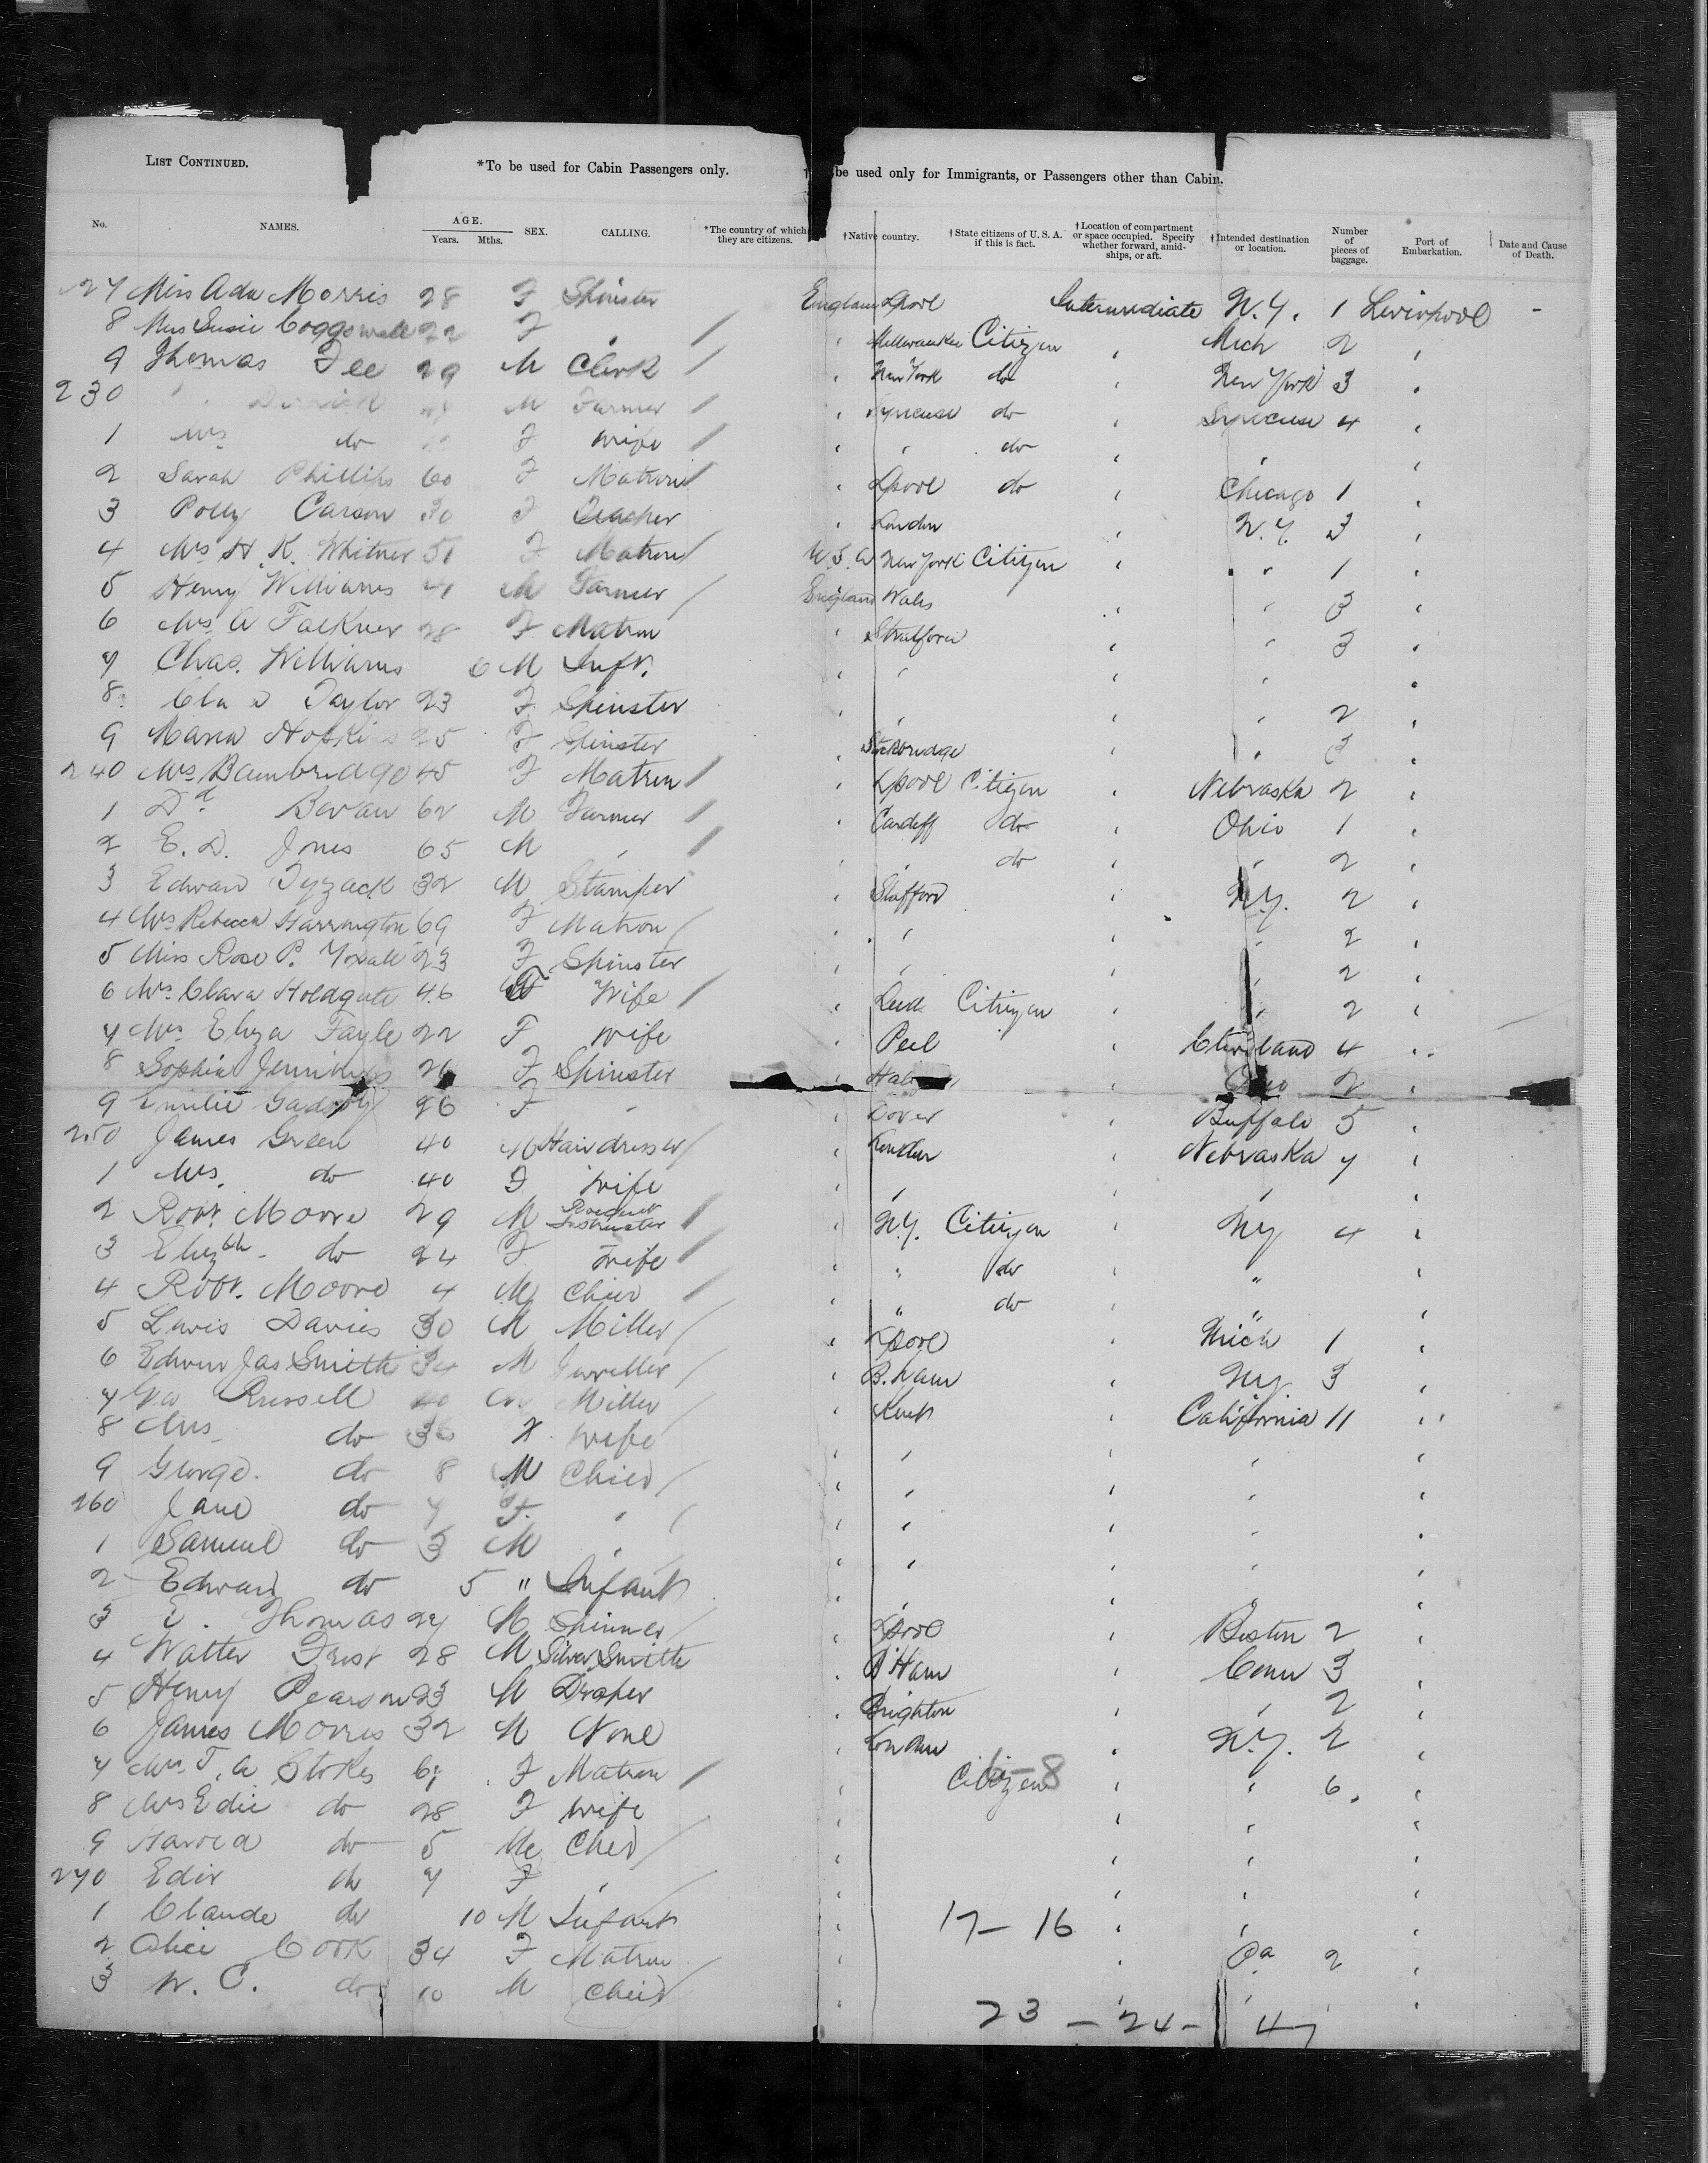 LIST CONTINUED. *To be used for Cabin Passengers only. be used only for Immigrants, or Passengers other than Cabin.
No. NAMES. AGE. Years. Mths. SEX. CALLING. *The country of which they are citizens. †Native country. †State citizens of U. S. A. if this is fact. †Location of compartment or space occupied. Specify whether forward, amidships, or aft. †Intended destination or location. Number of pieces of baggage. Port of Embarkation. Date and Cause of Death.
27 Miss Ada Morris 28 F Spinster England Lpool Intermediate N.Y. 1 Liverpool
8 Susie Coggswell 22 F " / " Milwaukee Citizen " Mich 2 "
9 Thomas Fee 29 M Clerk / " New York do " New York 3 "
230 M Farmer / " Syracuse do " Syracuse 4 "
1 Mrs do F Wife / " " do " " "
2 Sarah Phillips 60 F Matron / " Lpool do " Chicago 1 "
3 Polly Carson 30 F Teacher " London N.Y. 3 "
4 Mrs H. K. Whitner 51 F Matron / U.S.A New York Citizen " " 1 "
5 Henry Williams 41 M Farmer / England Wales " " 3 "
6 Mrs A Falkner 28 F Matron " Stratford " " 3 "
7 Chas. Williams 6 M Inft. " " " " "
8 Taylor 23 F Spinster " " " " 2 "
9 Maria Hopkins 25 F Spinster " Stockbridge " " 3 "
240 Mrs Bambridge 45 F Matron / " Lpool Citizen " Nebraska 2 "
1 Dd Bevan 62 M Farmer / " Cardiff do " Ohio 1 "
2 E. D. Jones 65 M " / " " do " " 2 "
3 Edward Tyzack 32 M Stamper " Stafford " N.Y. 2 "
4 Mrs Rebecca Harrington 69 F Matron / " " " " 2 "
5 Miss Rose P. Yoxall 23 F Spinster " " " " 2 "
6 Mrs Clara Holdgate 46 F Wife / " Leeds Citizen " " 2 "
7 Mrs Eliza Fayle 22 F Wife " Peel " Cleveland 4 "
8 Sophia Jennings 26 F Spinster " " Ohio 2 "
9 Emilie 26 F " " Dover " Buffalo 5 "
250 James Green 40 M Hairdresser / " London " Nebraska 7 "
1 Mrs. do 40 F Wife " " " " "
2 Robt. Moore 29 M Instructor / " N.Y. Citizen " NY 4 "
3 Elizbth do 24 F. Wife / " " do " " "
4 Robt. Moore 4 M Child / " " do " "
5 Lewis Davies 30 M Miller / " Lpool Mich 1 "
6 Edwin Jas Smith 34 M Jeweller / " B.ham " NY. 3 "
7 Geo Russell 40 M Miller / " Kent " California 11 "
8 Mrs do 36 F Wife " " " " "
9 George do 8 M Child / " " " " "
260 Jane do 7 F. " / " " " " "
1 Samuel do 3 M " " " " " "
2 Edward do 5 " Infant " " " "
3 E. Thomas 27 M Spinner / " Lpool " Boston 2 "
4 Walter 28 M Silver Smith " B'Ham " Conn 3 "
5 Henry Pearson 23 M Draper " Brighton " " 2 "
6 James Morris 32 M None " London " N.Y. 2 "
7 Mrs T. A Stokes F Matron / " Citizen 8 " " 6 "
8 Mrs Edie do 28 F Wife " " " "
9 Harold do 5 M Child / " " " "
270 Edie do 7 F " " " " "
1 Claude do 10 M Infant " 17 - 16 " " "
2 Alice Cork 34 F Matron " " Pa 2 "
3 W. C. do 10 M Child / " " " "
23 - 24 - 47